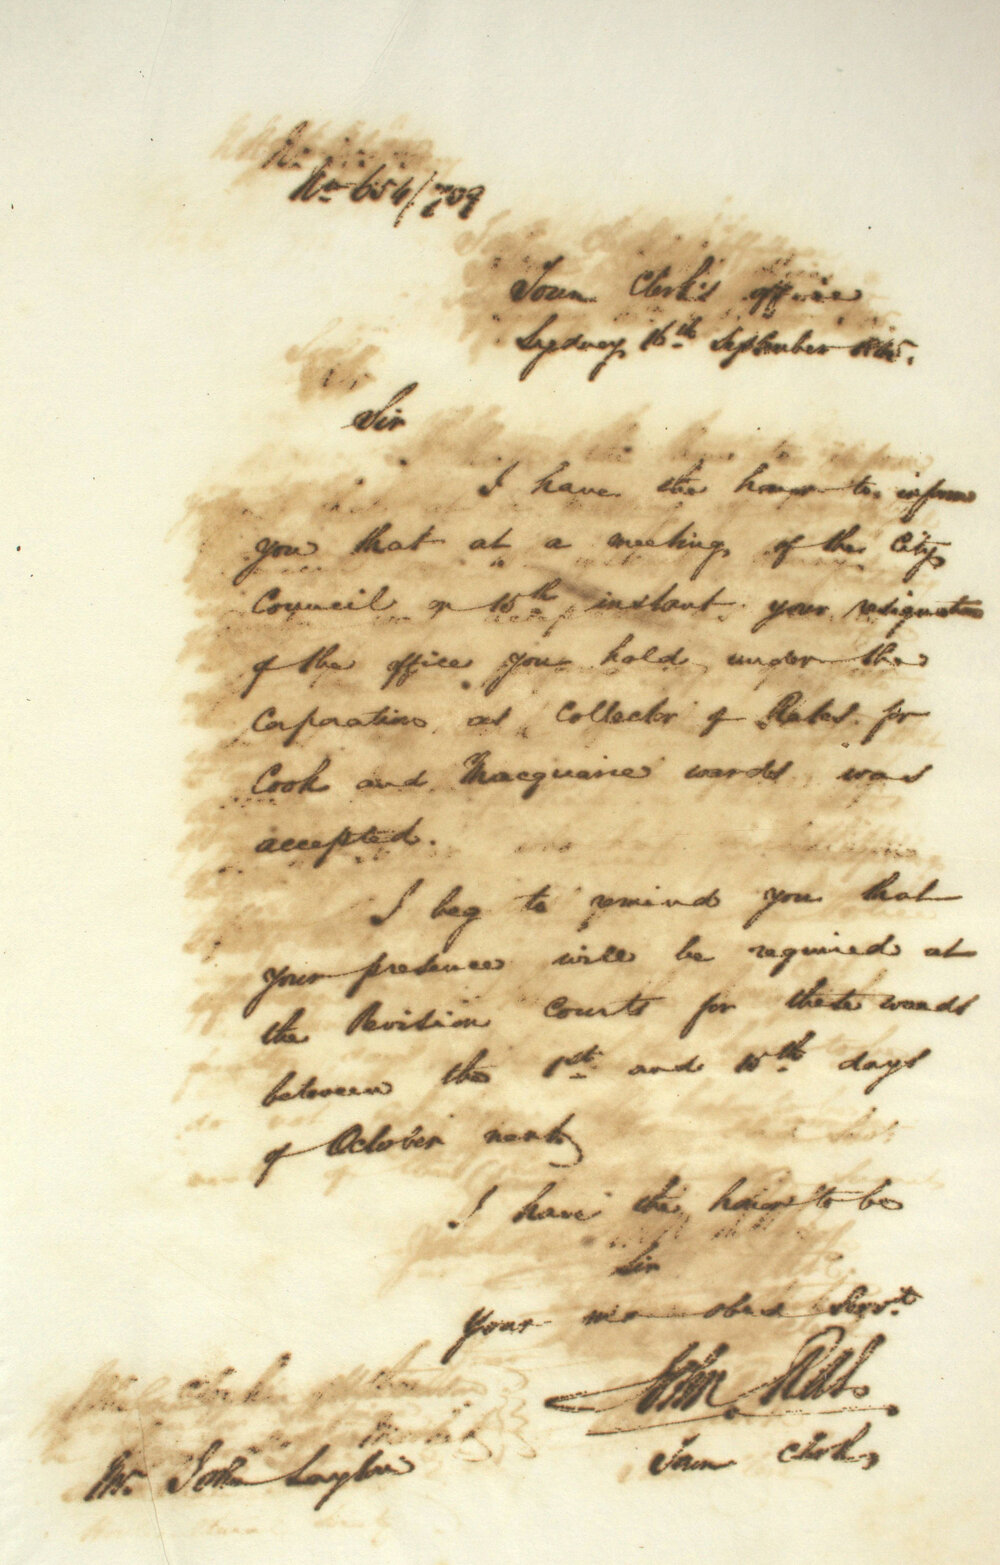 No. 654/709
Town Clerk's office
Sydney, 16th September 1845.
Sir
I have the honor to inform
you that at a meeting of the City
Council on 15th instant your resignation
of the office you hold under the
Corporation as Collector of Rates for
Cook and Macquarie wards was
accepted.
I beg to remind you that
your presence will be required at
the Revision Courts for these wards
between the 1st and 15th days
of October next
I have the honor to be
Sir
Your obed Servt
John
Town Clerk
Mr. John